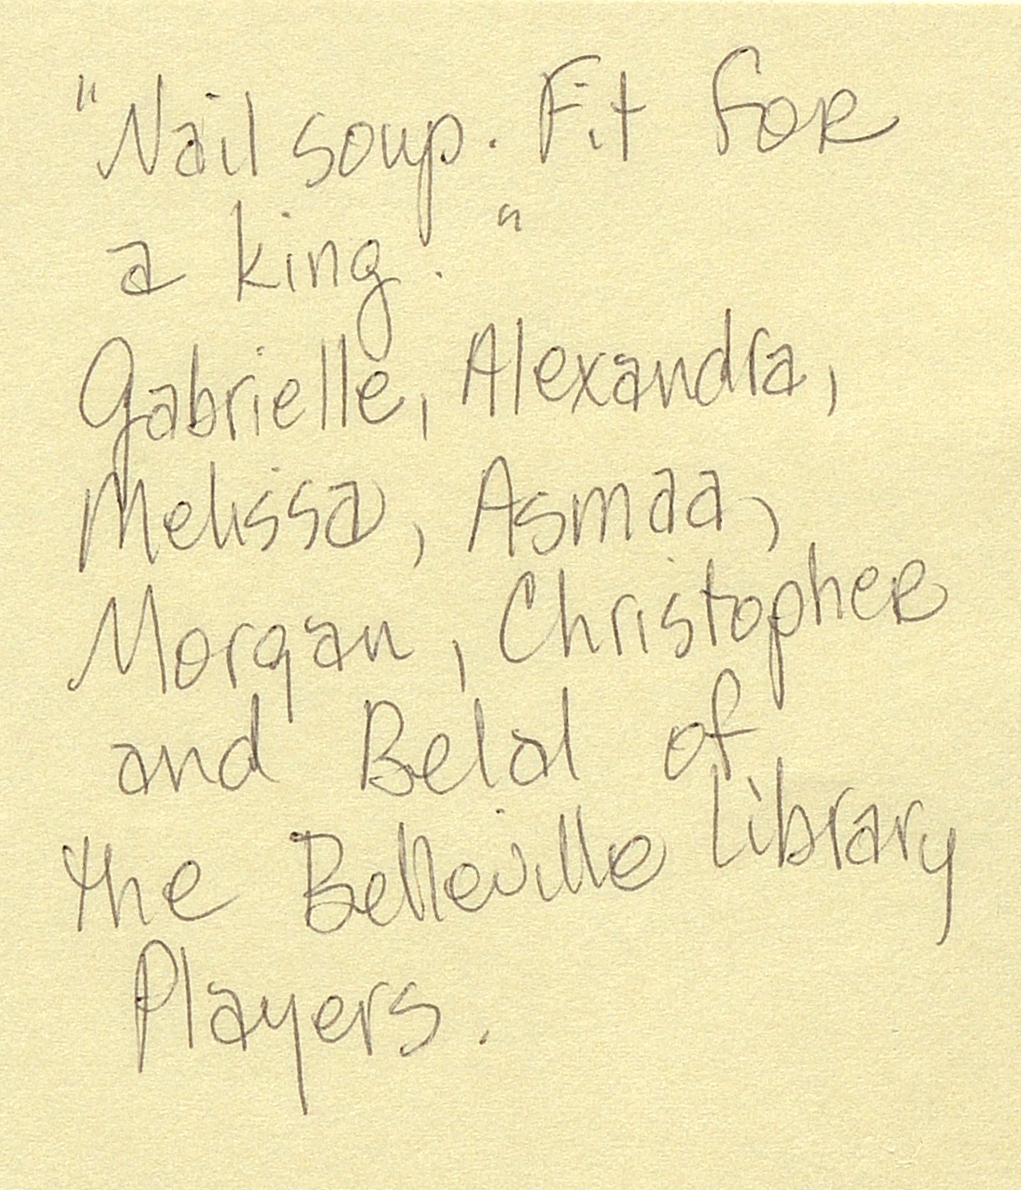 "Nail soup. Fit for
a king."
Gabrielle, Alexandra,
Melissa, Asmaa,
Morgan, Christopher
and Belal of
the Belleville Library
Players.